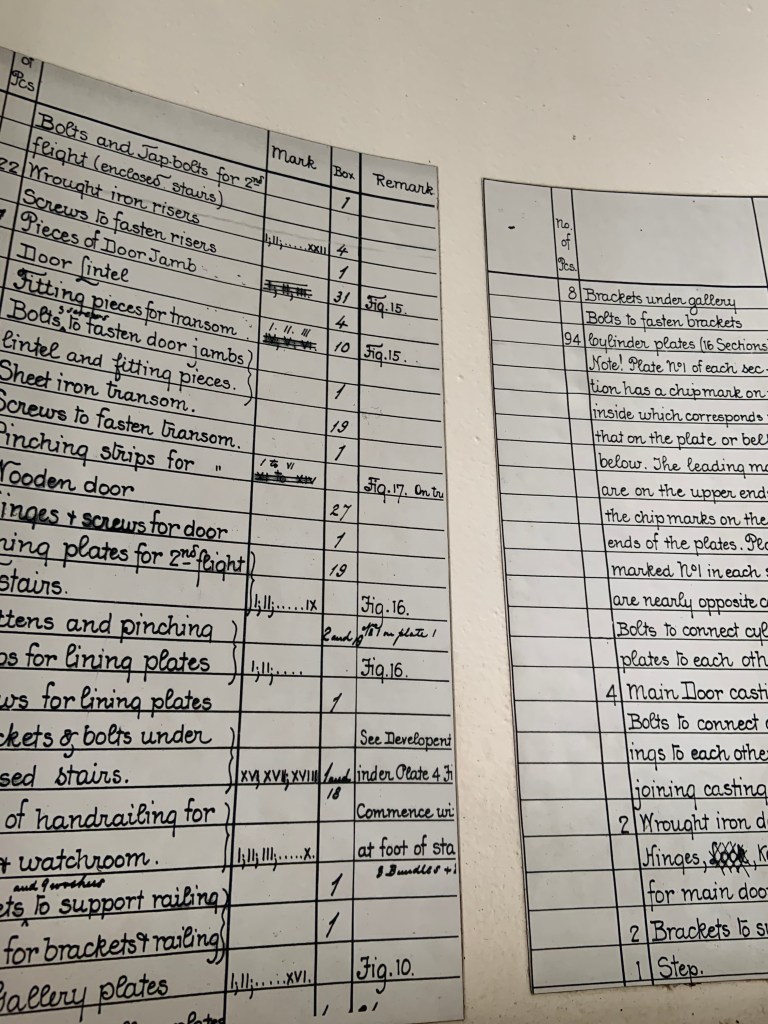 of
Pcs
Mark
Box
Remark
Bolts and Tap-bolts for 2nd
flight (enclosed stairs)
1
22 Wrought iron risers
I,II,.....XXII
4
Screws to fasten risers
1
Pieces of Door Jamb
31
Fig. 15.
Door Lintel
4
Fitting pieces for transom
I. II. III
10
Fig. 15.
Bolts, to fasten door jambs
lintel and fitting pieces.
1
Sheet iron transom.
19
Screws to fasten transom.
1
Pinching strips for "
I to VI
27
Fig. 17. On
Wooden door
1
inges + screws for door
19
ning plates for 2nd flight
stairs.
I,II,.....IX
Fig. 16.
2 and
on plate 1
ttens and pinching
ps for lining plates
I,II,....
Fig. 16.
ws for lining plates
1
ckets & bolts under
sed stairs.
XVI, XVII, XVIII
1 and
18
See Developent
inder Plate 4
of handrailing for
+ watchroom.
I,II,III,.....X.
Commence wi
at foot of sta
8 Bundles +
and 9 washers
ets to support railing
1
for brackets & railing
1
Gallery plates
I,II,.....XVI.
Fig. 10.
no.
of
Pcs.
8 Brackets under gallery
Bolts to fasten brackets
94 Cylinder plates (16 Sections)
Note! Plate No1 of each sec-
tion has a chipmark on
inside which corresponds
that on the plate or bel
below. The leading ma
are on the upper end
the chip marks on the
ends of the plates. Pla
marked No1 in each s
are nearly opposite
Bolts to connect cyl
plates to each oth
4 Main Door casti
Bolts to connect
ings to each othe
joining casting
2 Wrought iron d
Hinges,
for main doo
2 Brackets to su
1 Step.